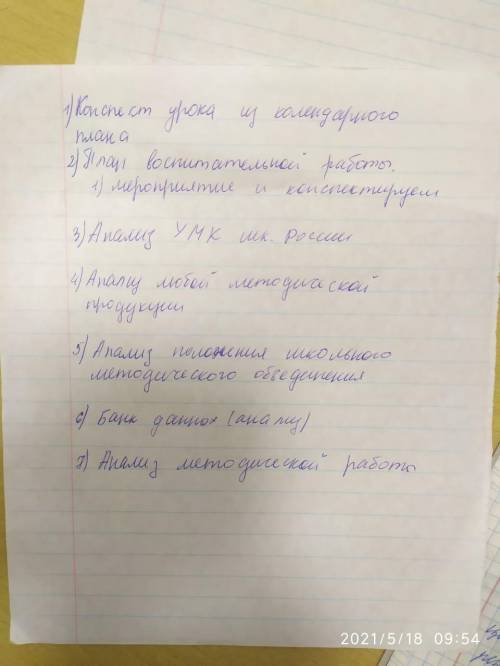 1) Конспект урока из колендарного
плана
2) План воспитательной работы.
1) мероприятие и конспектируем
3) Анализ УМК шк. России
4) Анализ любой методической
продукции
5) Анализ положения школьного
методического объединения
6) Банк данных (анализ)
7) Анализ методической работы
2021/5/18 09:54